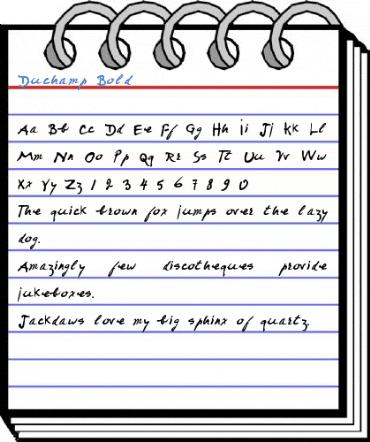 Duchamp Bold
Aa Bb Cc Dd Ee Ff Gg Hh Ii Jj Kk Ll
Mm Nn Oo Pp Qq Rr Ss Tt Uu Vv Ww
Xx Yy Zz 1 2 3 4 5 6 7 8 9 0
The quick brown fox jumps over the lazy
dog.
Amazingly few discotheques provide
jukeboxes.
Jackdaws love my big sphinx of quartz